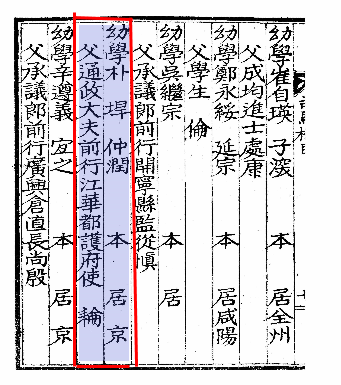 幼學崔自瑛 子瀅 本 居全州
父成均進士處康
幼學鄭永綏 延宗 本 居咸陽
父學生 倫
幼學吳繼宗 本 居
父承議郞前行開寧縣監從愼
幼學朴 埋 仲潤 本 居京
父通政大夫前行江華都護府使 輪
幼學辛遵義 宜之 本 居京
父承議郞前行廣興倉直長尙殷